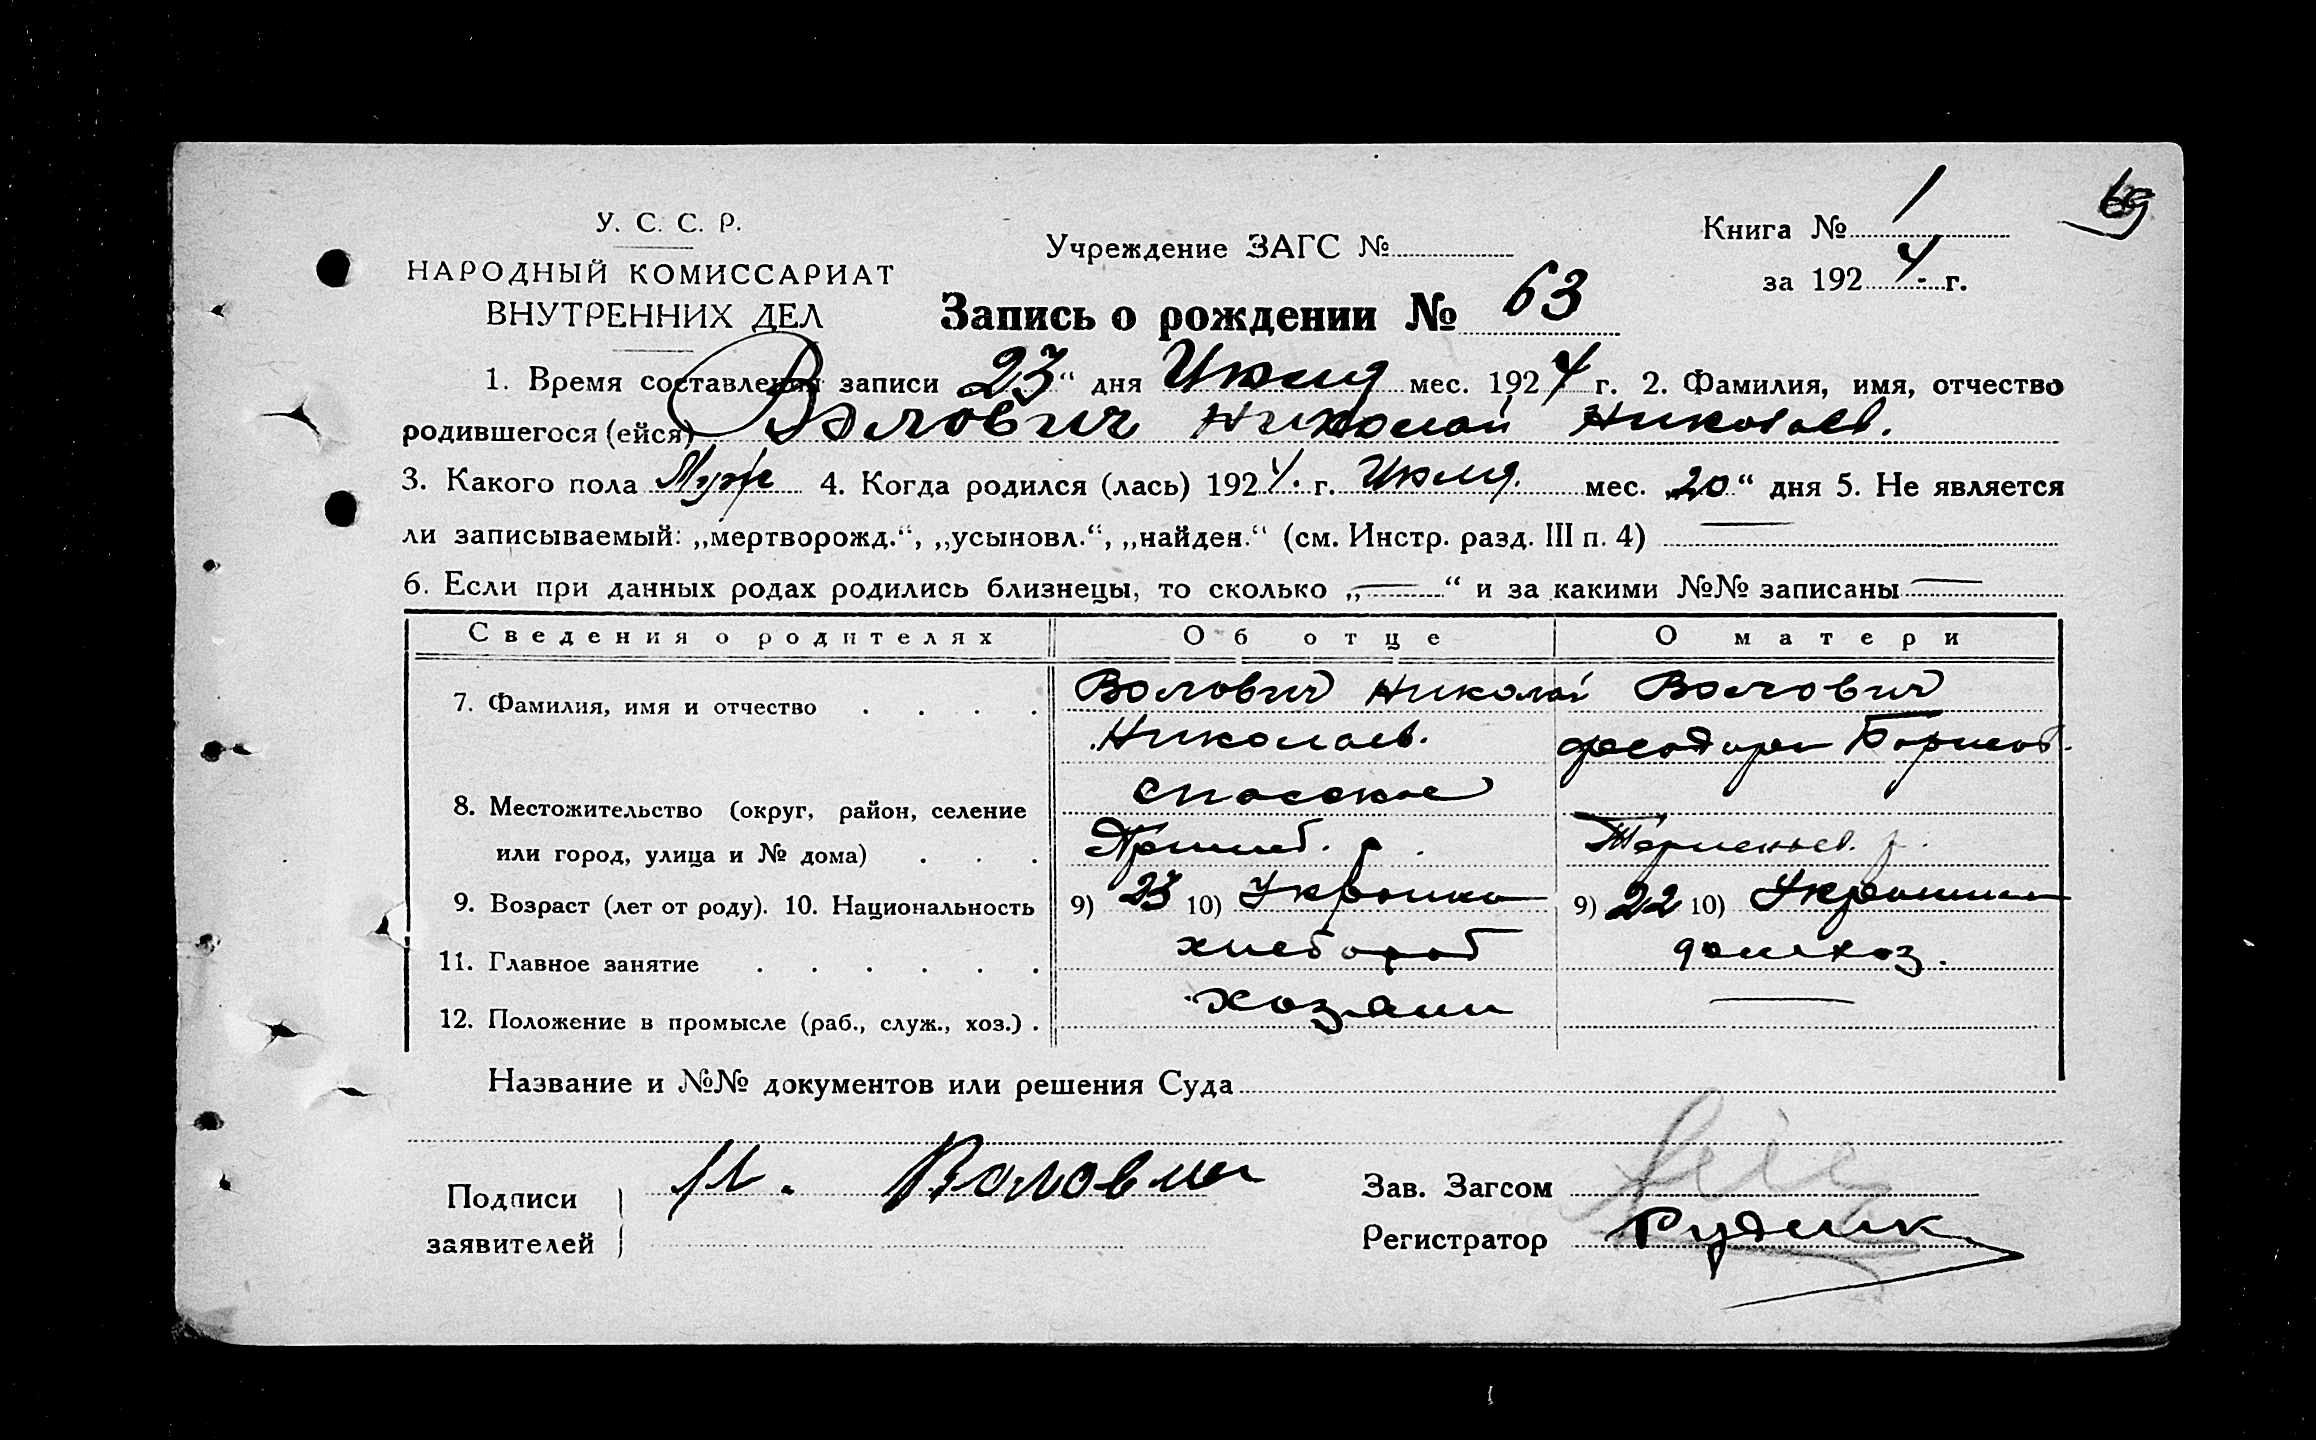 69
У. С. С. Р.
НАРОДНЫЙ КОМИССАРИАТ
ВНУТРЕННИХ ДЕЛ
Учреждение ЗАГС №
Книга № 1
за 1924 г.
Запись о рождении № 63
1. Время составления записи „23“ дня Июля мес. 1924 г. 2. Фамилия, имя, отчество
родившегося (ейся) Волович Николай Николаев.
3. Какого пола Муж 4. Когда родился (лась) 1924. г. Июля. мес. „20“ дня 5. Не является
ли записываемый: „мертворожд.“, „усыновл.“, „найден.“ (см. Инстр. разд. III п. 4) —
6. Если при данных родах родились близнецы, то сколько „—“ и за какими №№ записаны —
Сведения о родителях Об отце О матери
7. Фамилия, имя и отчество . . . . Волович Николай Волович
Николаев. Феодора Борисов.
8. Местожительство (округ, район, селение Спасское
или город, улица и № дома) . . . р. р.
9. Возраст (лет от роду). 10. Национальность 9) 23 10) 9) 22 10)
11. Главное занятие . . . . . . хлебороб домхоз.
12. Положение в промысле (раб., служ., хоз.) . хозяин —
Название и №№ документов или решения Суда
Подписи Н. Волович Зав. Загсом
заявителей Регистратор Рудик